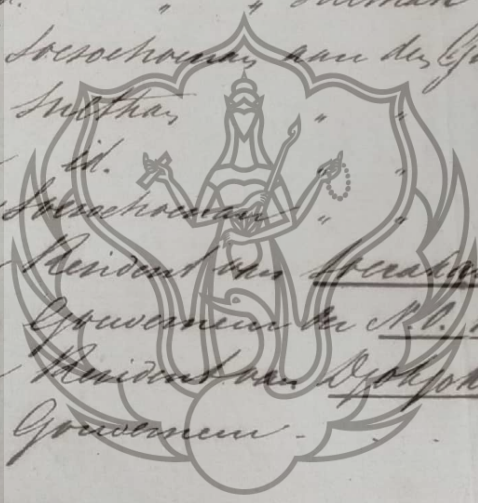 " " Sulthan
Soesoehoenan aan den G
Sulthan " "
id. "
Soesoehoenan " "
Resident van Soeraka
Gouverneur der N.O.
Resident van Djokjok
Gouverneur.